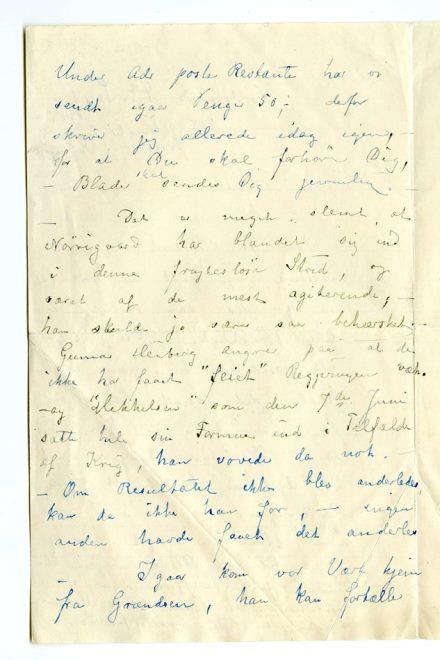 Under Adr poste Restante har vi
sendt igaar Penge 50,- defor
skriver jeg allerede idag igjen,-
for at Du skal forhøre Dig,
- Blade skal sendes Dig jevnlig. -
- Det er meget slemt at
Nörregaard har blandet sig ind
i denne Strid, og
været af de mest agiterende, -
han skulde jo være saa behersket. -
Gunnar Heiberg angrer paa at de
ikke har faaet "feiet" Regjeringen væk.
-og som den 7de Juni
satte hele sin Formue ind i Tilfælde
af Krig, han vovede da nok. -
- Om Resultatet ikke blev anderledes,
kan de ikke han for, - ingen
anden havde faaet det anderles
- Igaar kom vor Vært hjem
fra Grændsen, han kan fortælle